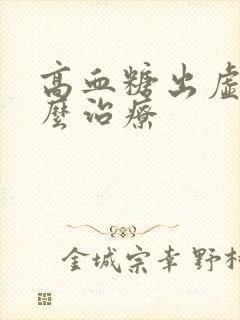 高血糖出虛
麼治療
金城宗幸野村